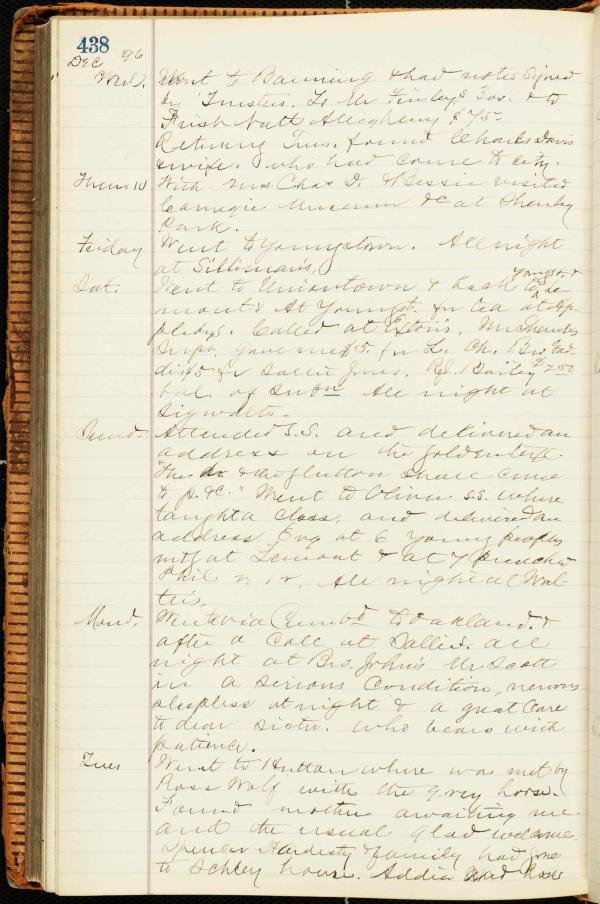 438
Dec 96
Wed. Went to Banning & had notes signed
by Trustees. To Mr Finley & &
Nutt Allegheny $75-
Returning Tues. found Charles Davis
& wife. who had come to city.
Thurs 10 With Mrs Chas D. & Bessie visited
Carnegie Museum &c at Shenley
Park.
Friday Went to Youngstown. All night
at Silliman's.
Sat. Went to Uniontown &
mont & At Youngst. for tea at
Called at Mr Shanks
Supt. gave me $5. for L. Ch. Bro
$5 for Sallie Jones. Bailey $2.50
bal. of Subn All night at
Sigwalts-
Sund. Attended S.S. and delivered an
address on the golden text.
"The & the glutton shall come
to p. &c." Went to Oliver S.S. where
taught a class, and delivered an
address Eng at 6 Young peoples
mtg at Lemont & at 7 preached
Phil All night at Wal-
ters.
Mond. Went via Cumbd to Oakland. &
after a call at Sallies. all
night at Bro. John's Mr Scott
in a serious condition, nervous
sleepless at night & a great care
to dear sister. who bears with
patience.
Tues Went to Hutton where was met by
Ross Wolf with the grey horse.
Found mother awaiting me
and the usual glad welcome.
Spencer Hardesty & family had gone
to Schley house. Addie and Rosie